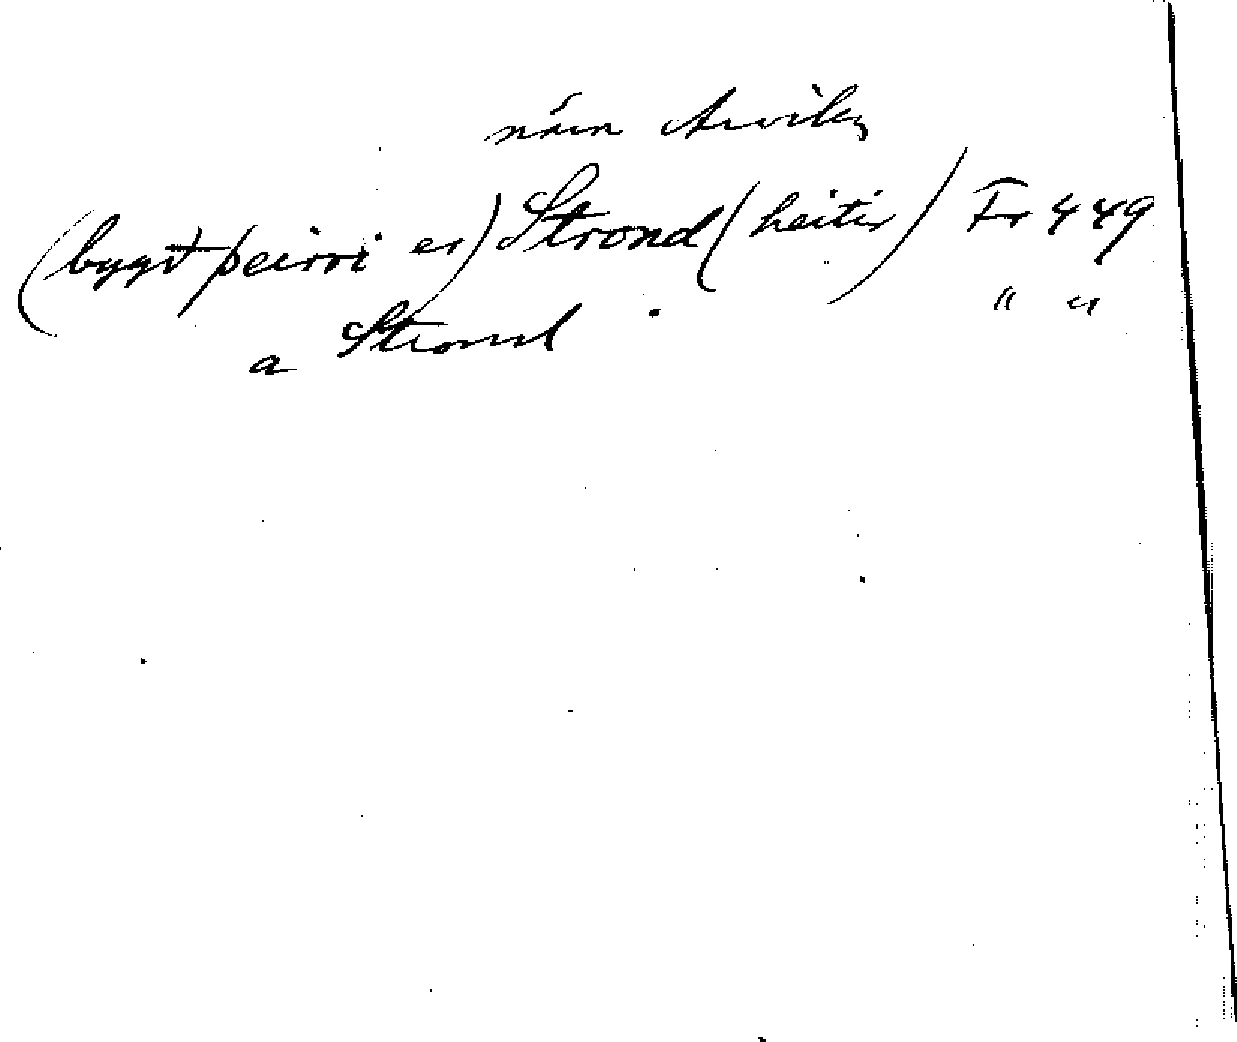 nám Arvika
(bygð þeirri er) Strond (heitir) Fr 449
a Strond " "